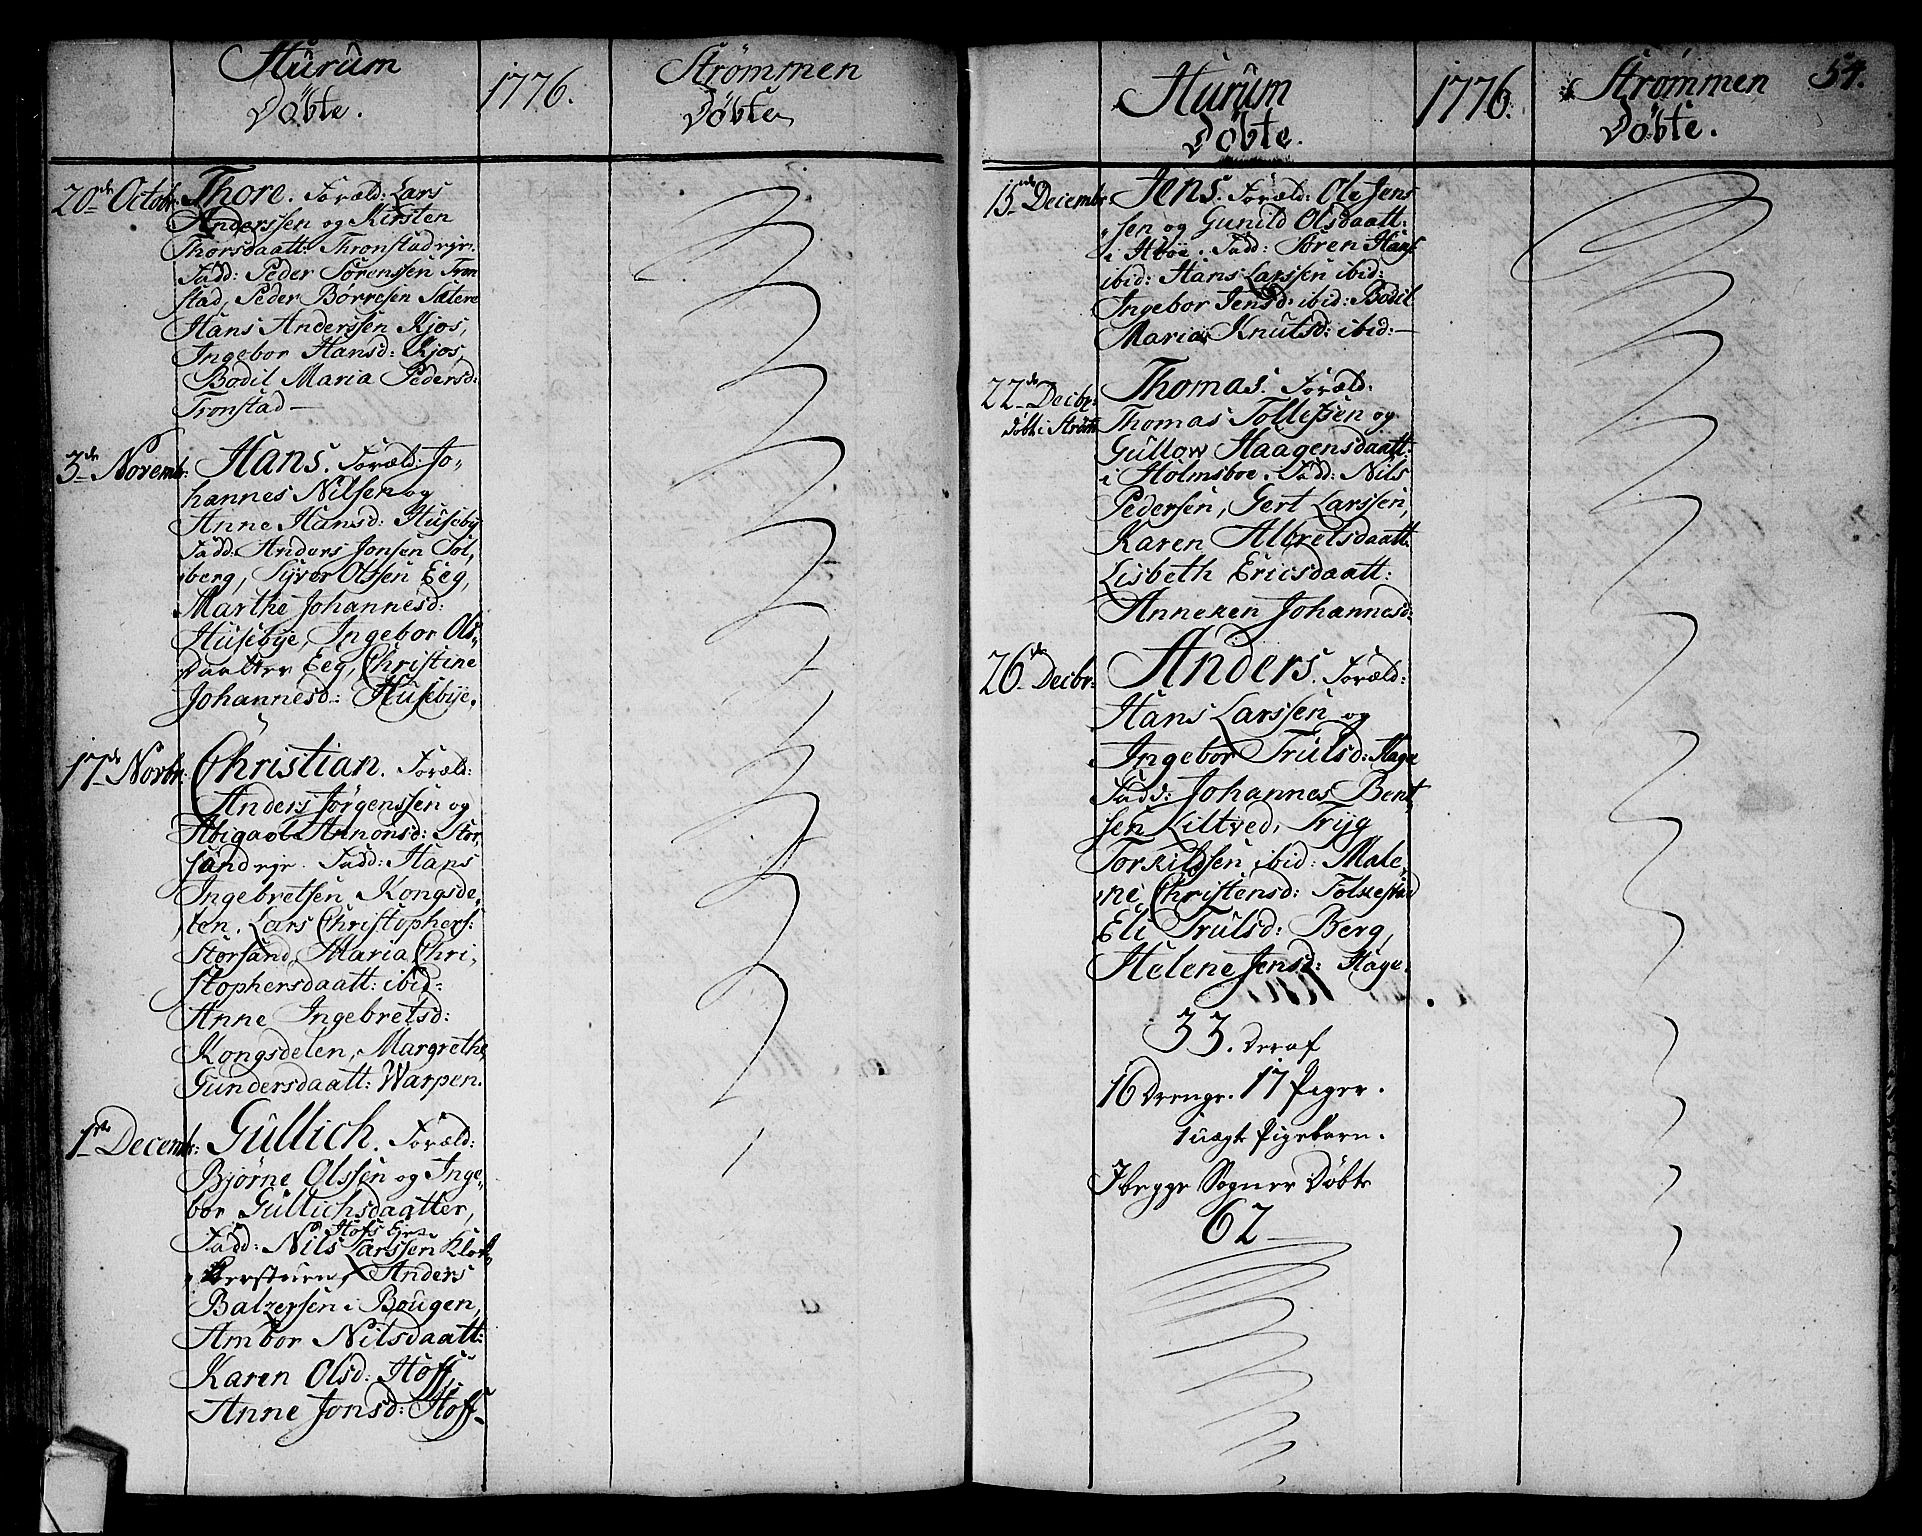 Hurum
Døbte.
1776.
Strømmen
Døbte
20de Octobr: Thore. Foræld: Lars
Anderssen og Kirsten
Thorsdaatt: Thronstadejr:
Fadd: Peder Sørenssen Tron
stad, Peder Børresen Sætere
Hans Anderssen Kjos,
Ingebor Hansd: Kjos,
Bodil Maria Pedersd:
Tronstad—
3de Novembr: Hans. Foræld: Jo-
hannes Nilsen og
Anne Hansd: Husebÿ
Fadd: Anders Jonsen Sol-
berg, Syver Olssen Eeg,
Marthe Johannesd:
Husebÿe, Ingebor Ols-
daatter Eeg, Christine
Johannesd: Husebÿe.
17de Novbr: Christian. Foræld:
Anders Jørgenssen og
Abigael Aronsd: Stor-
sand ejr. Fadd: Hans
Ingebretsen Kongsde-
len. Lars Christophers:
Storsand, Maria Chri-
stophersdaatt: ibid:
Anne Ingebretsd:
Kongsdelen, Margrethe
Gundersdaatt: Warpen.
1ste Decembr: Gullich. Foræld:
Bjørne Olssen og Inge-
bor Gullichsdaatter,
Hofs Ejr
Fadd: Nils Larssen Klok-
kerstuen, Anders
Balzersen i Bougen,
Ambor Nilsdaatt:
Karen Olsd: Hoff,
Anne Jonsd: Hoff-
Hurum
Døbte.
1776.
Strømmen
Døbte.
54.
15de Decembr: Jens. Foræld: Ole Jens
sen og Gunild Olsdaatt:
i Fadd: Søren Hans
ibid: Hans Larssen ibid:
Ingebor Jensd: ibid: Bodil
Maria Knutsd: ibid:—
22de Decbr: Thomas. Foræld:
døbt i Strøm: Thomas Tollefsen og
Gullow Haagensdaatt:
i Holmsboe. Fadd: Nils
Pedersen, Gert Larssen,
Karen Albretsdaatt:
Lisbeth Ericsdaatt:
Anneken Johannesd:
26de Decbr: Anders. Foræld:
Hans Larssen og
Ingebor Trulsd: Hage
Fadd: Johannes Bent
sen Kiltved, Tryg
Torkildsen ibid: Male-
ne Christensd: Tofkestad
Eli Trulsd: Berg,
Helene Jensd: Hage.
33. deraf
16 Drenge. 17 Piger.
1 uægte Pigebarn.
I begge Sogner Døbte
62